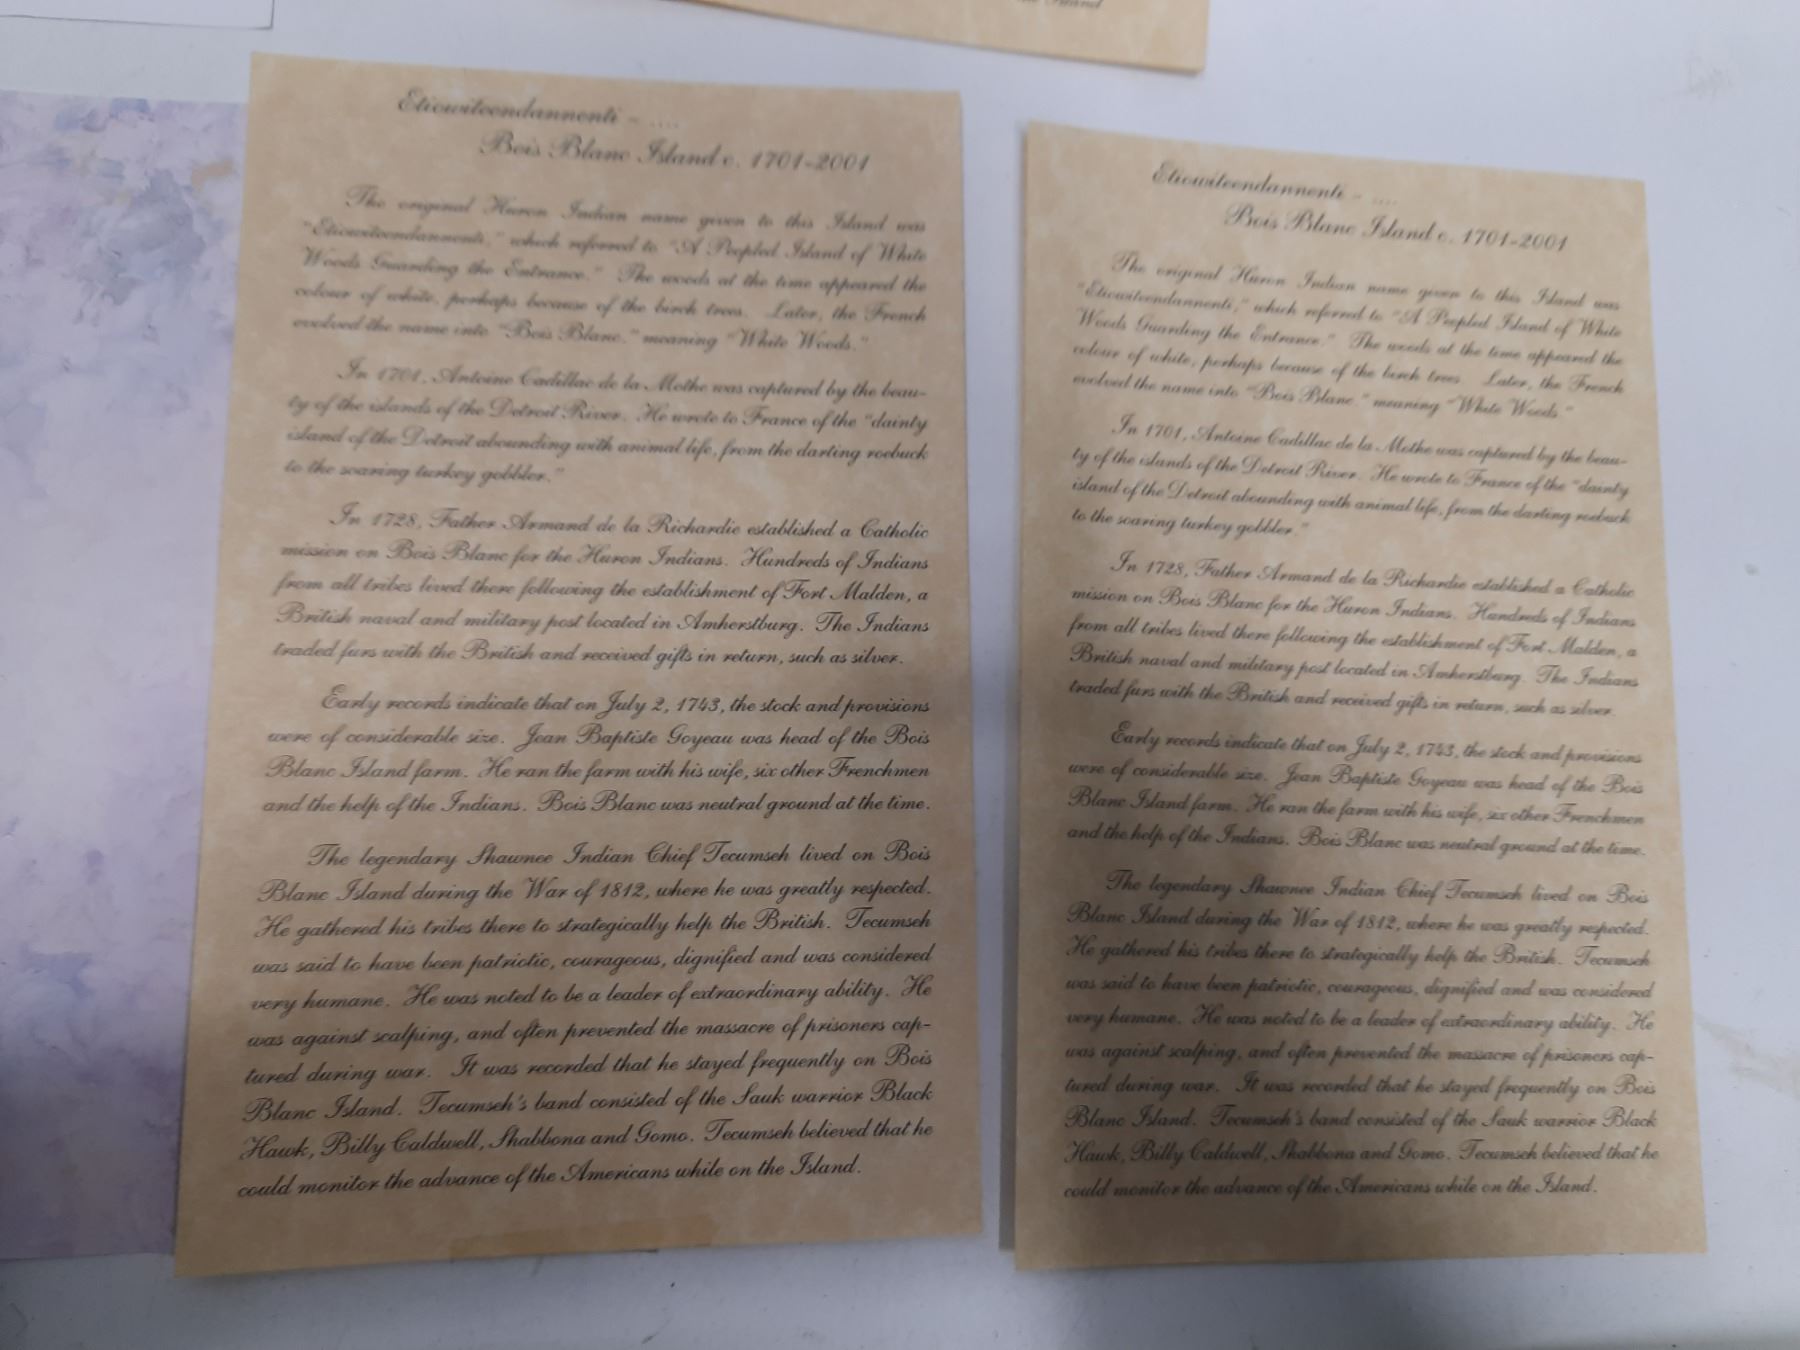 Island
Etiowiteendannenti - ....
Bois Blanc Island c. 1701-2001
The original Huron Indian name given to this Island was
"Etiowiteendannenti," which referred to "A Peopled Island of White
Woods Guarding the Entrance." The woods at the time appeared the
colour of white, perhaps because of the birch trees. Later, the French
evolved the name into "Bois Blanc." meaning "White Woods."
In 1701, Antoine Cadillac de la Mothe was captured by the beau-
ty of the islands of the Detroit River. He wrote to France of the "dainty
island of the Detroit abounding with animal life, from the darting roebuck
to the soaring turkey gobbler."
In 1728, Father Armand de la Richardie established a Catholic
mission on Bois Blanc for the Huron Indians. Hundreds of Indians
from all tribes lived there following the establishment of Fort Malden, a
British naval and military post located in Amherstburg. The Indians
traded furs with the British and received gifts in return, such as silver.
Early records indicate that on July 2, 1743, the stock and provisions
were of considerable size. Jean Baptiste Goyeau was head of the Bois
Blanc Island farm. He ran the farm with his wife, six other Frenchmen
and the help of the Indians. Bois Blanc was neutral ground at the time.
The legendary Shawnee Indian Chief Tecumseh lived on Bois
Blanc Island during the War of 1812, where he was greatly respected.
He gathered his tribes there to strategically help the British. Tecumseh
was said to have been patriotic, courageous, dignified and was considered
very humane. He was noted to be a leader of extraordinary ability. He
was against scalping, and often prevented the massacre of prisoners cap-
tured during war. It was recorded that he stayed frequently on Bois
Blanc Island. Tecumseh's band consisted of the Sauk warrior Black
Hawk, Billy Caldwell, Shabbona and Gomo. Tecumseh believed that he
could monitor the advance of the Americans while on the Island.
Etiowiteendannenti - ....
Bois Blanc Island c. 1701-2001
The original Huron Indian name given to this Island was
"Etiowiteendannenti," which referred to "A Peopled Island of White
Woods Guarding the Entrance." The woods at the time appeared the
colour of white, perhaps because of the birch trees. Later, the French
evolved the name into "Bois Blanc." meaning "White Woods."
In 1701, Antoine Cadillac de la Mothe was captured by the beau-
ty of the islands of the Detroit River. He wrote to France of the "dainty
island of the Detroit abounding with animal life, from the darting roebuck
to the soaring turkey gobbler."
In 1728, Father Armand de la Richardie established a Catholic
mission on Bois Blanc for the Huron Indians. Hundreds of Indians
from all tribes lived there following the establishment of Fort Malden, a
British naval and military post located in Amherstburg. The Indians
traded furs with the British and received gifts in return, such as silver.
Early records indicate that on July 2, 1743, the stock and provisions
were of considerable size. Jean Baptiste Goyeau was head of the Bois
Blanc Island farm. He ran the farm with his wife, six other Frenchmen
and the help of the Indians. Bois Blanc was neutral ground at the time.
The legendary Shawnee Indian Chief Tecumseh lived on Bois
Blanc Island during the War of 1812, where he was greatly respected.
He gathered his tribes there to strategically help the British. Tecumseh
was said to have been patriotic, courageous, dignified and was considered
very humane. He was noted to be a leader of extraordinary ability. He
was against scalping, and often prevented the massacre of prisoners cap-
tured during war. It was recorded that he stayed frequently on Bois
Blanc Island. Tecumseh's band consisted of the Sauk warrior Black
Hawk, Billy Caldwell, Shabbona and Gomo. Tecumseh believed that he
could monitor the advance of the Americans while on the Island.